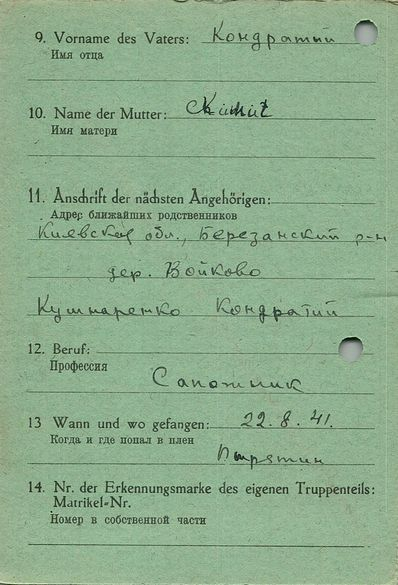 9. Vorname des Vaters: Кондратий
Имя отца
10. Name der Mutter:
Имя матери
11. Anschrift der nächsten Angehörigen:
Адрес ближайших родственников
Киевская обл., Березанский р-н
дер. Войково
Кушнаренко Кондратий
12. Beruf:
Профессия
Сапожник
13 Wann und wo gefangen: 22.8.41.
Когда и где попал в плен
Пирятин
14. Nr. der Erkennungsmarke des eigenen Truppenteils:
Matrikel-Nr.
Номер в собственной части